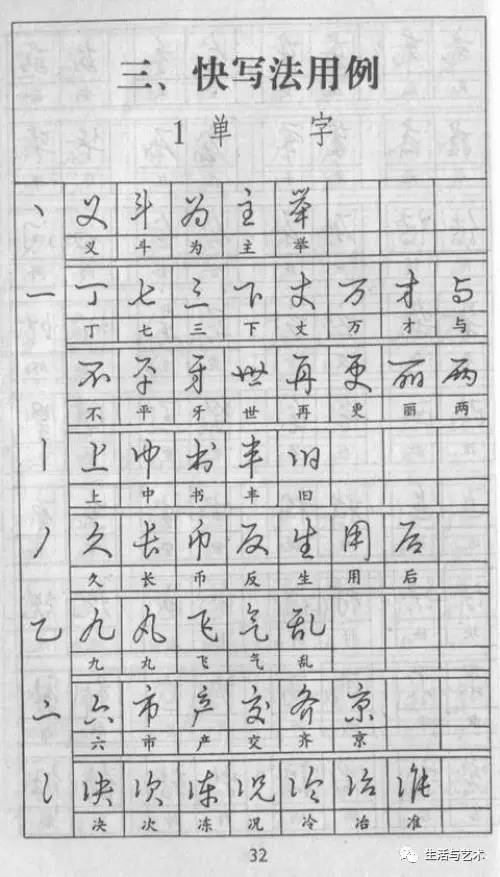 三、快写法用例
1 单 字
丶 义 斗 为 主 举
义 斗 为 主 举
一 丁 七 三 下 丈 万 才 与
丁 七 三 下 丈 万 才 与
不 平 牙 世 再 更 丽 两
不 平 牙 世 再 更 丽 两
丨 上 中 书 丰 旧
上 中 书 丰 旧
丿 久 长 币 反 生 用 后
久 长 币 反 生 用 后
乙 九 丸 飞 气 乱
九 丸 飞 气 乱
亠 六 市 产 交 齐 京
六 市 产 交 齐 京
冫 决 次 冻 况 冷 冶 准
决 次 冻 况 冷 冶 准
32
生活与艺术